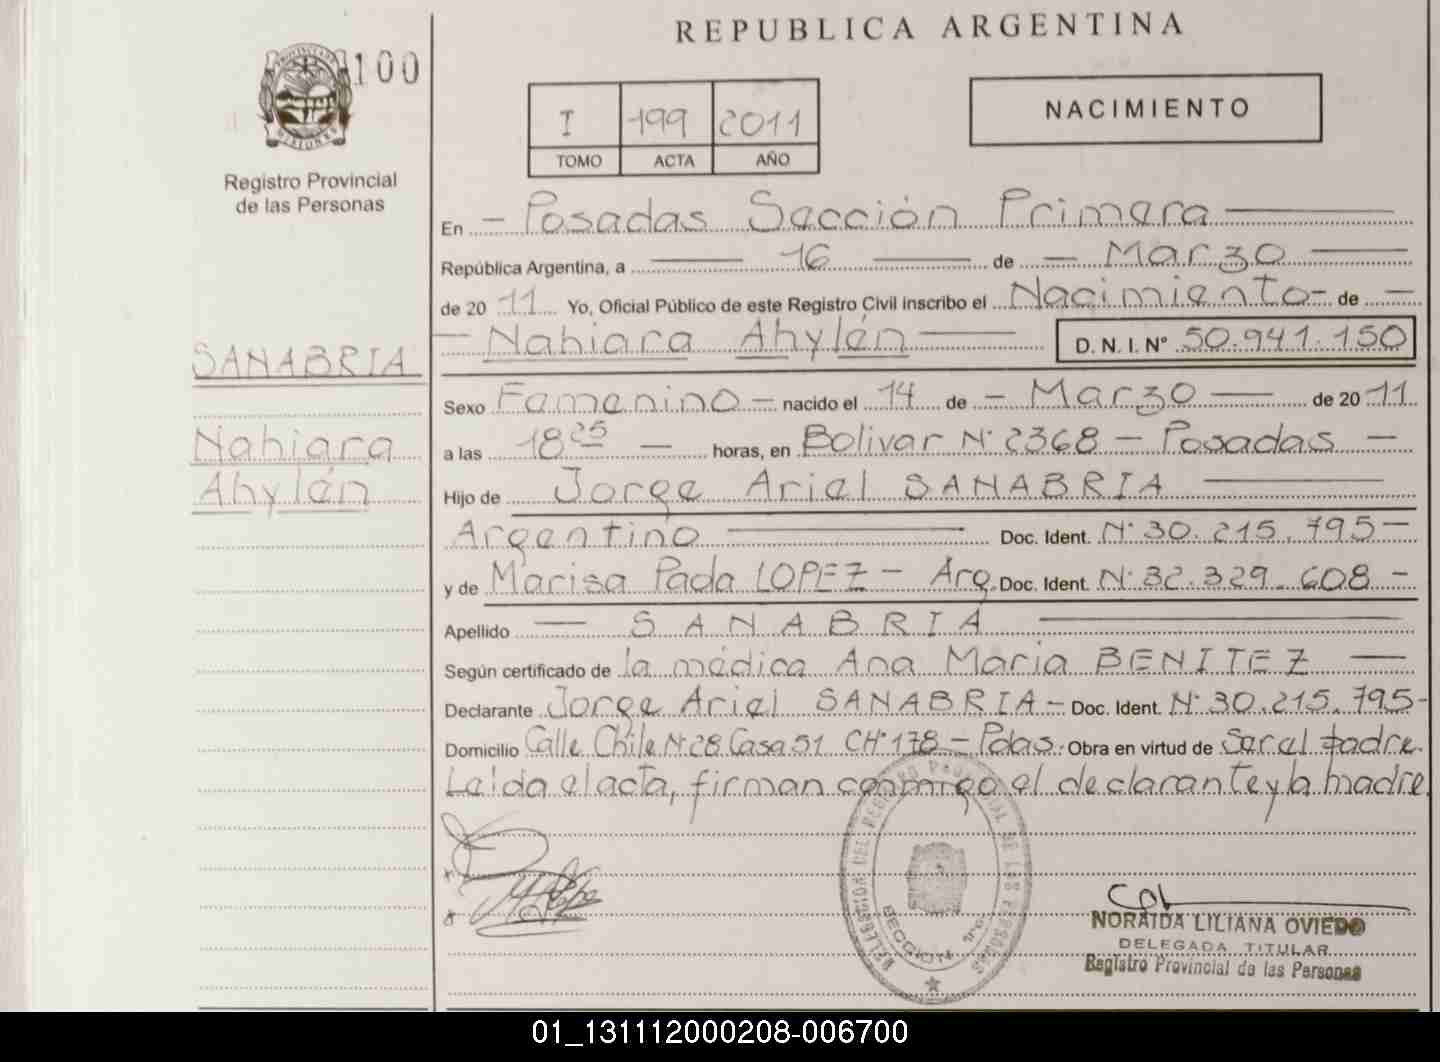 REPUBLICA ARGENTINA
100
PROVINCIA DE MISIONES
Registro Provincial
de las Personas
I 199 2011
TOMO ACTA AÑO
NACIMIENTO
En - Posadas Sección Primera
República Argentina, a 16 de - Marzo
de 2011 Yo, Oficial Público de este Registro Civil inscribo el Nacimiento - de -
- Nahiara Ahylén D. N. I. Nº 50.941.150
SANABRIA
Nahiara
Ahylén
Sexo Femenino - nacido el 14 de - Marzo - de 2011
a las 18 25 - horas, en Bolivar Nº 2368 - Posadas -
Hijo de Jorge Ariel SANABRIA
Argentino Doc. Ident. Nº 30.215.795 -
y de Marisa Paola LOPEZ - Arg. Doc. Ident. Nº 32.329.608 -
Apellido - SANABRIA
Según certificado de la médica Ana Maria BENITEZ -
Declarante Jorge Ariel SANABRIA - Doc. Ident. Nº 30.215.795 -
Domicilio Calle Chile Nº 28 Casa 51 CHº 178 - Pdas. Obra en virtud de Ser el padre.
Leida el acta, firman conmigo el declarante y la madre.
DELEGACION DEL REGISTRO PROVINCIAL DE LAS PERSONAS
SECCION 1ro.
NORAIDA LILIANA OVIEDO
DELEGADA TITULAR
Registro Provincial de las Personas
01_131112000208-006700